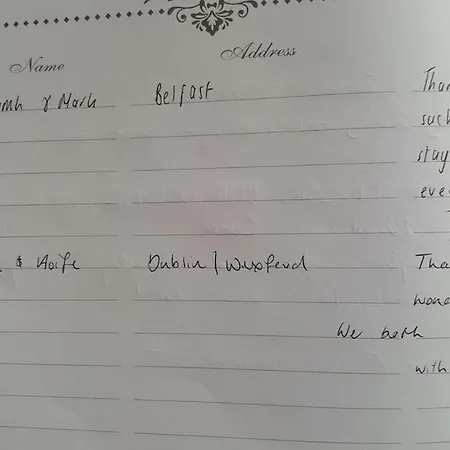 Name Address
& Mark Belfast Than
such
stay
eve
& Aoife Dublin / Wexford Tha
wond
We both
with